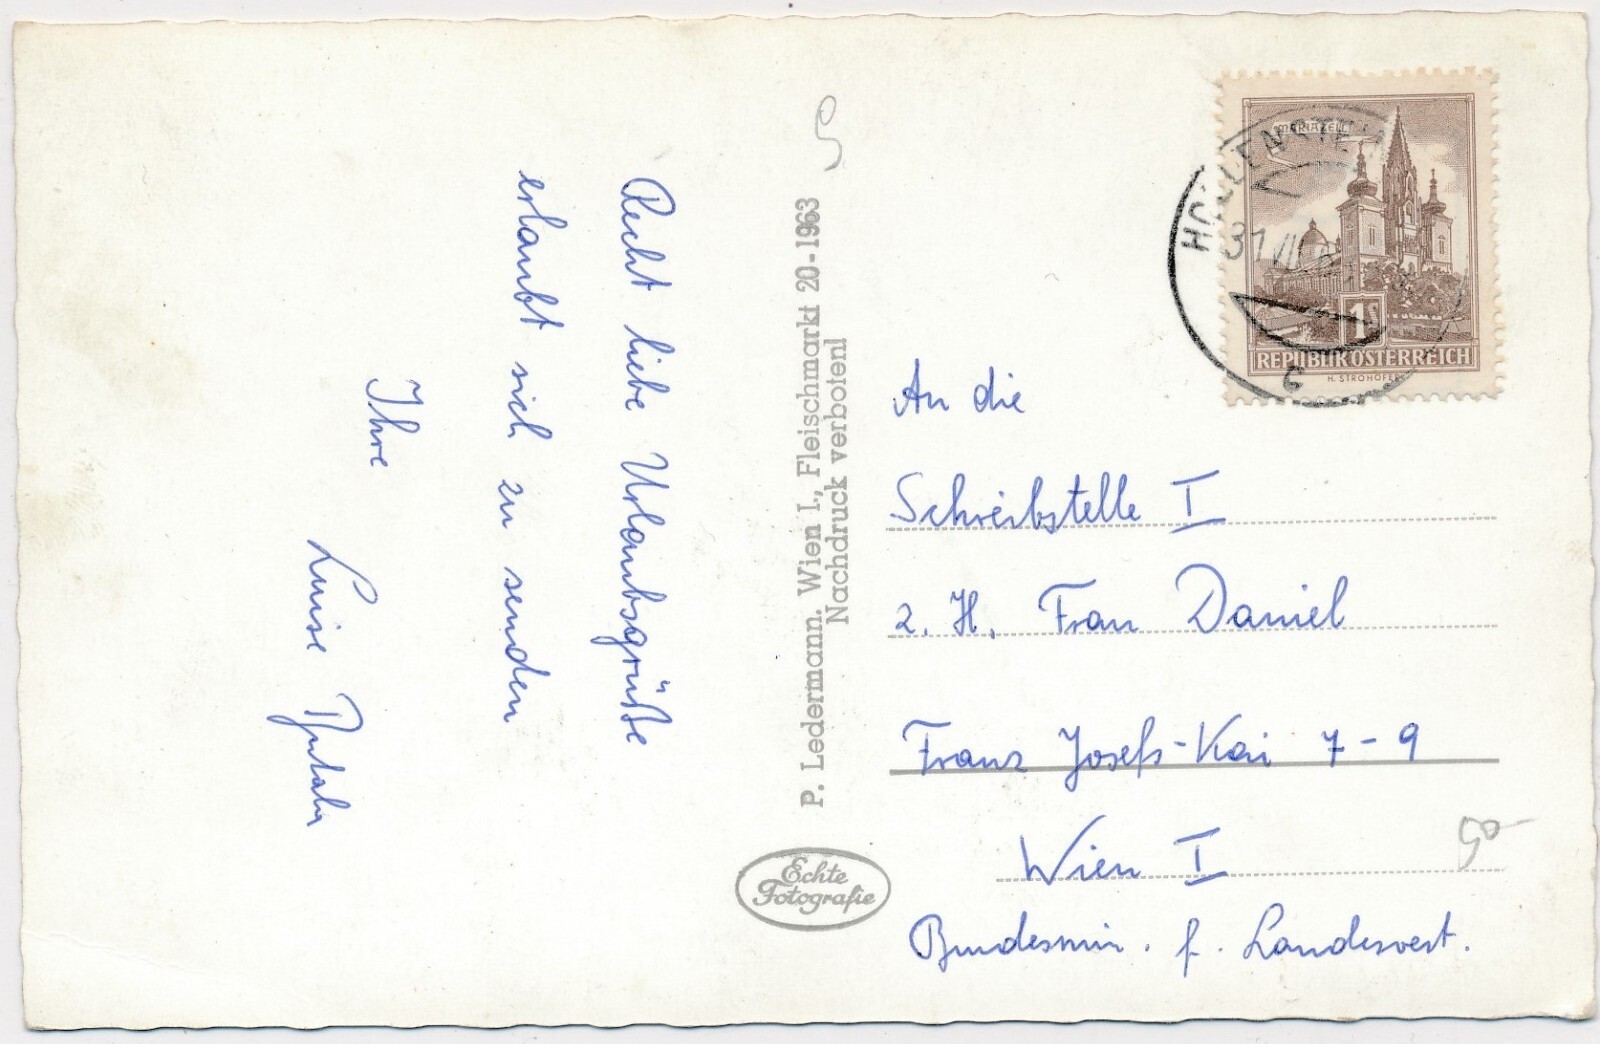 Recht liebe Urlaubsgrüße
erlaubt sich zu senden
Ihre
Luise
P. Ledermann. Wien I., Fleischmarkt 20-1963
Nachdruck verboten!
Echte
Fotografie
MARIAZELL
1S
REPUBLIK ÖSTERREICH
H. STROHOFER
HOLLENSTEIN
31 VII
c
An die
Schreibstelle I
z. H. Frau Daniel
Franz Josefs-Kai 7-9
Wien I
Bundesmin. f. Landesvert.